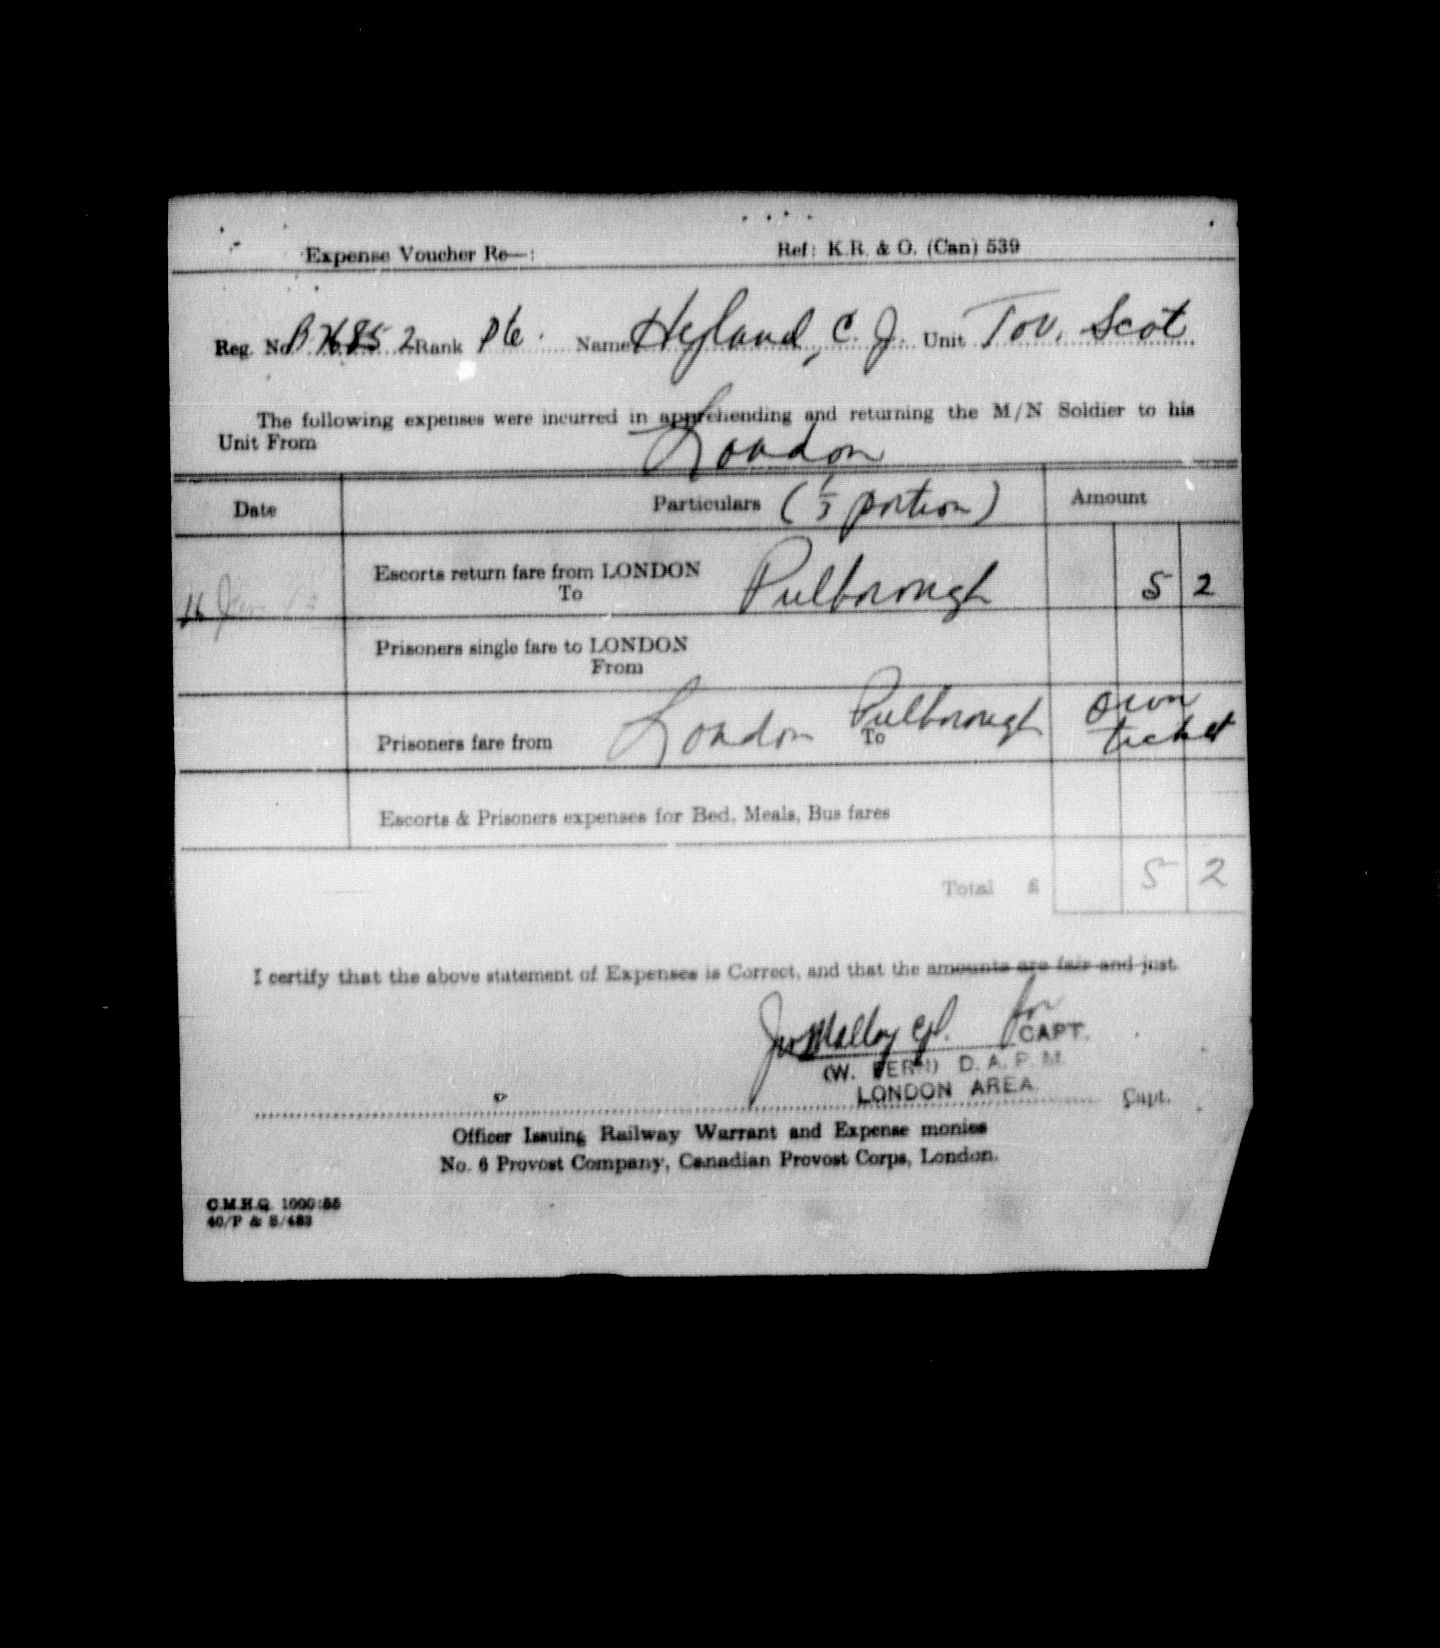 Expense Voucher Re—: Ref: K.R. & O. (Can) 539
Reg. No B76852 Rank Pte. Name Hyland, C. J. Unit Tor. Scot
The following expenses were incurred in apprehending and returning the M/N Soldier to his
Unit From London
Date Particulars (1/3 portion) Amount
Escorts return fare from LONDON
To Pulborough 5 2
Prisoners single fare to LONDON
From
Prisoners fare from London To Pulborough own ticket
Escorts & Prisoners expenses for Bed, Meals, Bus fares
Total £ 5 2
I certify that the above statement of Expenses is Correct, and that the amounts are fair and just.
Malloy Cpl. for
CAPT.
(W. FERN) D. A. P. M.
LONDON AREA.
Capt.
Officer Issuing Railway Warrant and Expense monies
No. 6 Provost Company, Canadian Provost Corps, London.
C.M.H.Q.
40/P & S/483